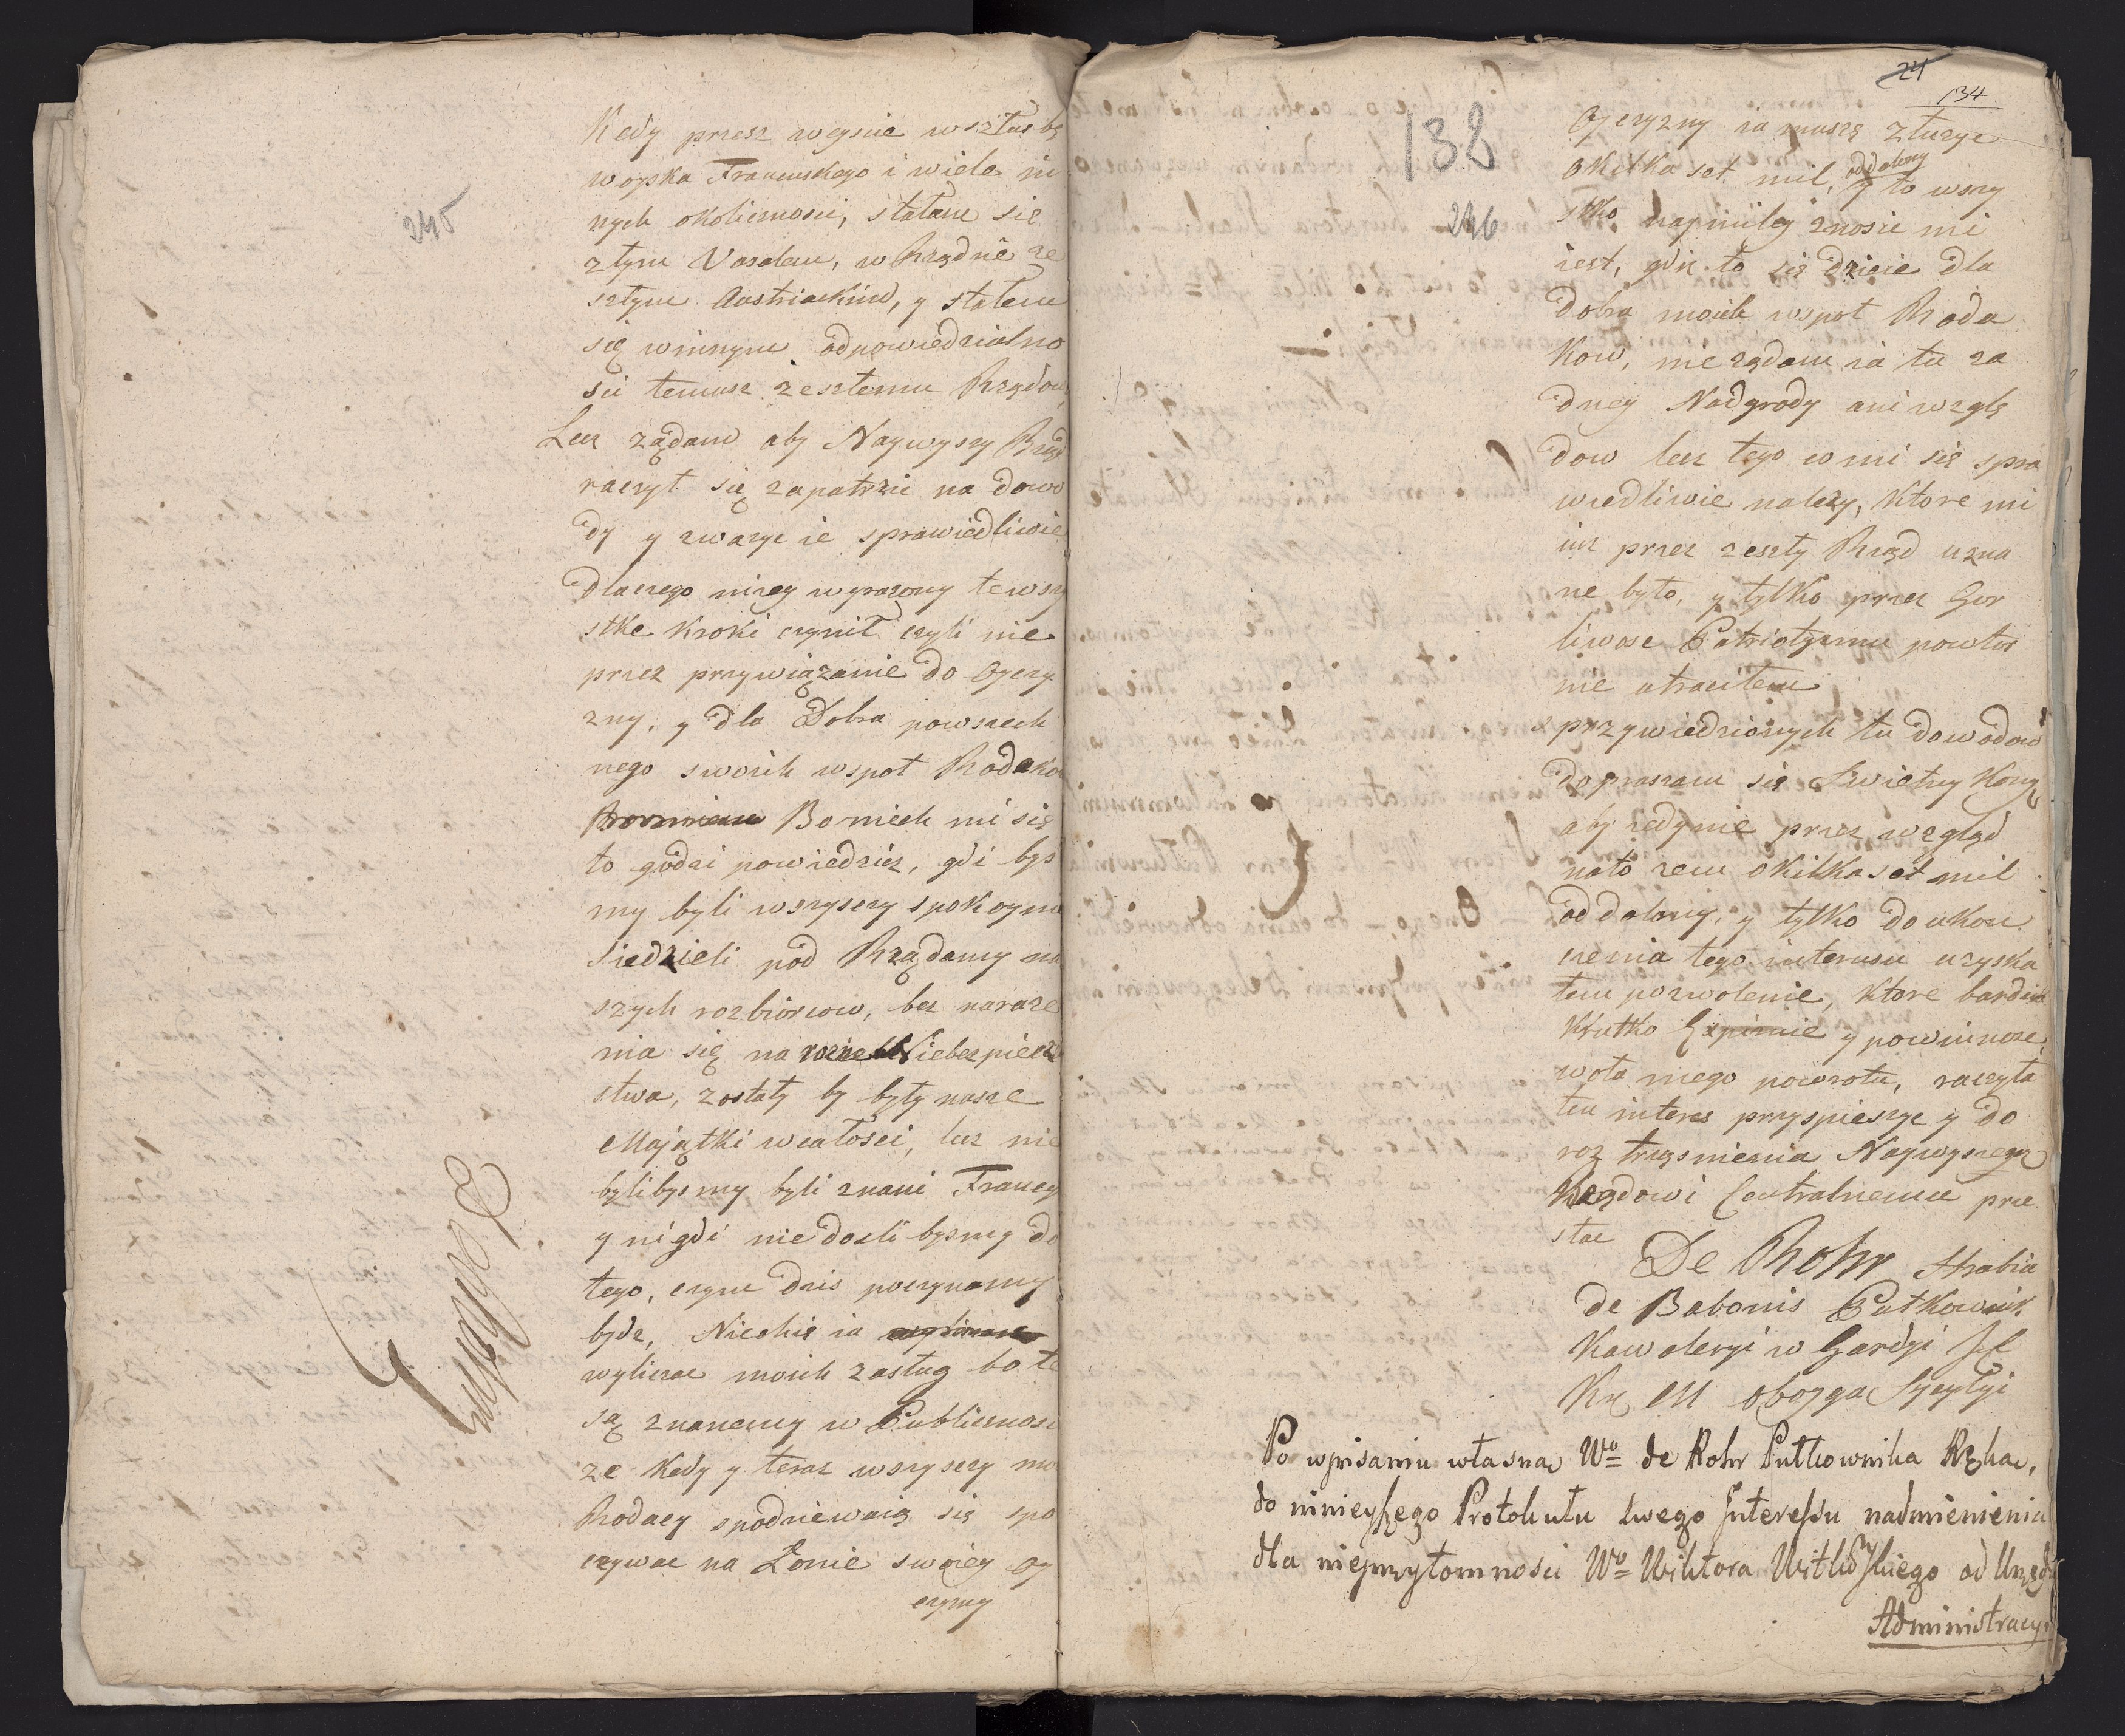 245
Kedy przesz weysnie w sztusby
woyska Francuskego i wiele in
nych okolicznosci, stałam się
z tym Vasalem, w Rządnie ze
sztym Austriackim, y stałem
się winnym odpowiedzialno
sci temusz zesztemu Rządowi
Lecz żądam aby Naywyszy Rząd
raczył się zapatrzic na dowo
dy y zwazyc ie sprawiedliwie
dlaczego nizey wyrazony te wszy
stke kroki czynił czyli nie
przez przywiązanie do Oyczy
zny, y dla Dobra powszech
nego swoich wspoł Rodako
Boniech mi się
to godzi powiedziez, gdi bys
my byli wszysczy spokoyni
siedzieli pod Rządamy na
szych rozbiorcow, bez naraze
nia się na Niebezpiecz
stwa, zostały by były nasze
Majątki wcałosci, lecz nie
bylibysmy byli znani Francy
y nigdi niedoslibysmy do
tego, czym dzis poczynamy
bydz, Niechce ia
wyliczac moich zasług bo te
są znanemy w Publicznosci
ze kedy y teraz wszysczy moi
Rodacy spodziewaią się spo
czywac na Łonie swoiey Oy
czyzny
24
134
138
246
Oyczyzny ia muszę złuzyc
okilka set mil, oddalony y to wszy
stko naymiley znosic mi
iest, gdiz to się dzieie dla
dobra moich wspoł Roda
kow, nie ządam ia tu za
dney Nadgrody ani wzglę
dow lecz tego co mi się spra
wiedliwie nalezy, ktore mi
iuz przez zeszty Rząd uzna
ne było, y tylko przez Gor
liwosc Patriotyzmu powtor
nie utraciłem
z przywiedzionych tu dowodow
dopraszam się Swietny Komy
aby iedynie przez wzgląd
nato zem okilkaset mil
oddalony, y tylko do ukon
czenia tego interusu uzyska
łem pozwolenie, ktore bardzo
krutko Expiruie y powinnosc
woła mego powrotu, raczyła
ten interes przyspieszyc y do
roztrząsnienia Naywyszego
Rządowi Centralnemu prze
stac
De Rohr Hrabia
de Babonis Pułkownik
Kawaleryi w Gardyi
Kr M oboyga Sycylyi
Po wpisaniu własną Wo de Rohr Pułkownika Ręką,
do ninieyszego Protokułu swego Interessu nadmienienia
dla nieprzytomnosci Wo Wiktora od Urzędu
Administracyi